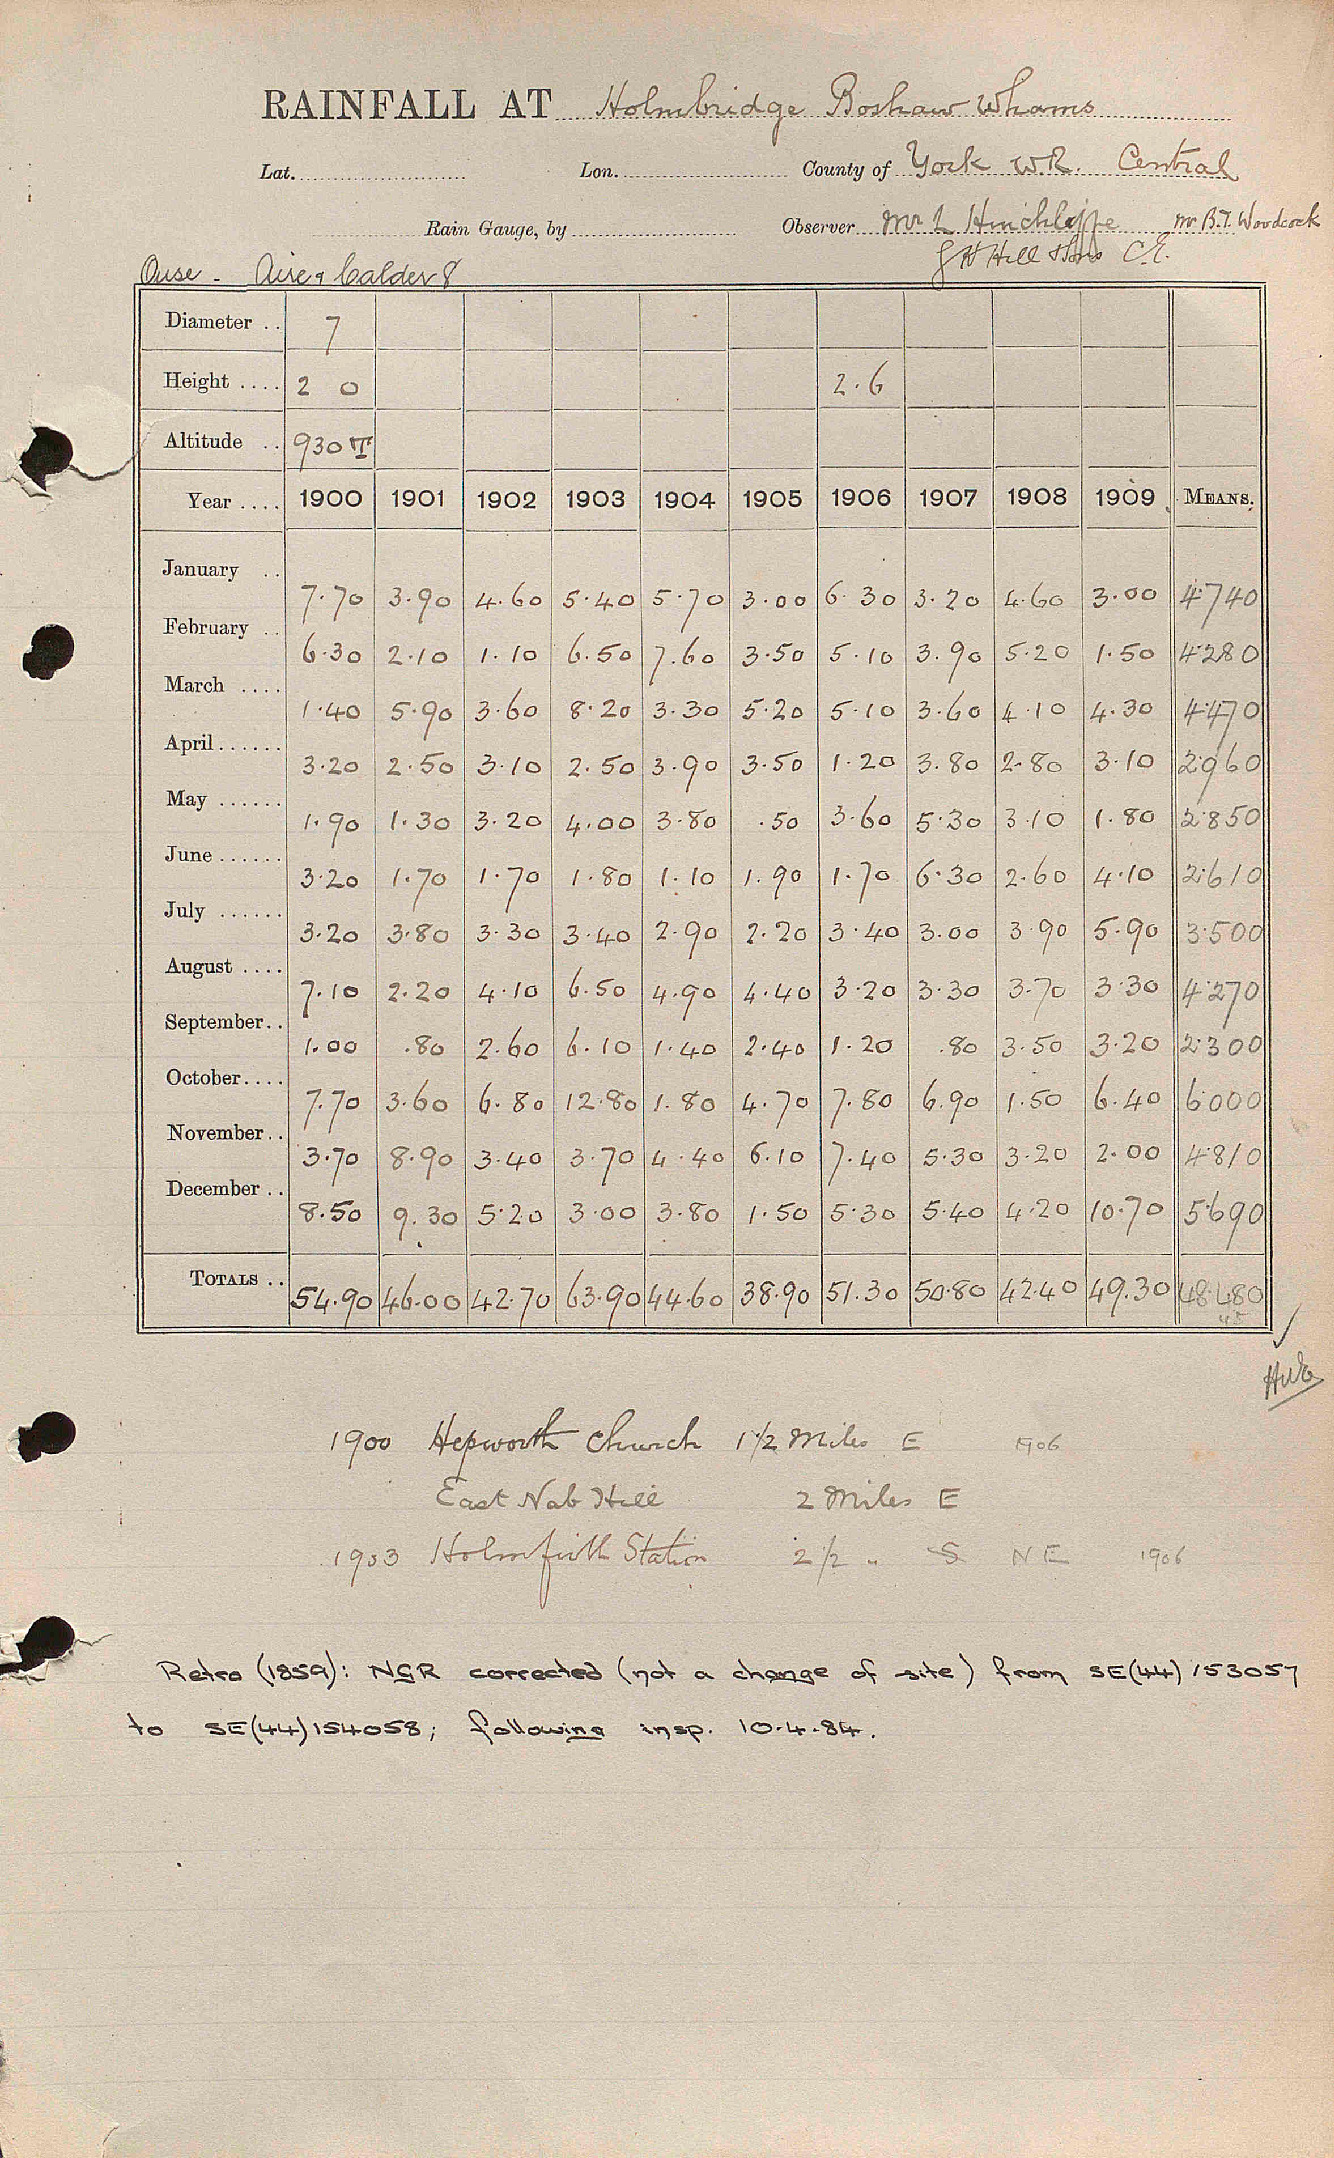 RAINFALL AT Holmbridge Boshaw Whams
Lat. Lon. County of York W.R. Central
Rain Gauge, by Observer Mr L Hinchliffe Mr B.T. Woodcock
G H Hill & Sons C.E.
Ouse - Aire & Calder 8
Diameter .. 7
Height .... 2 0 2.6
Altitude .. 930 T
Year .... 1900 1901 1902 1903 1904 1905 1906 1907 1908 1909 MEANS.
January .. 7.70 3.90 4.60 5.40 5.70 3.00 6.30 3.20 4.60 3.00 4.740
February .. 6.30 2.10 1.10 6.50 7.60 3.50 5.10 3.90 5.20 1.50 4.280
March .... 1.40 5.90 3.60 8.20 3.30 5.20 5.10 3.60 4.10 4.30 4.470
April...... 3.20 2.50 3.10 2.50 3.90 3.50 1.20 3.80 2.80 3.10 2.960
May ...... 1.90 1.30 3.20 4.00 3.80 .50 3.60 5.30 3.10 1.80 2.850
June ...... 3.20 1.70 1.70 1.80 1.10 1.90 1.70 6.30 2.60 4.10 2.610
July ...... 3.20 3.80 3.30 3.40 2.90 2.20 3.40 3.00 3.90 5.90 3.500
August .... 7.10 2.20 4.10 6.50 4.90 4.40 3.20 3.30 3.70 3.30 4.270
September.. 1.00 .80 2.60 6.10 1.40 2.40 1.20 .80 3.50 3.20 2.300
October.... 7.70 3.60 6.80 12.80 1.80 4.70 7.80 6.90 1.50 6.40 6.000
November.. 3.70 8.90 3.40 3.70 4.40 6.10 7.40 5.30 3.20 2.00 4.810
December .. 8.50 9.30 5.20 3.00 3.80 1.50 5.30 5.40 4.20 10.70 5.690
TOTALS .. 54.90 46.00 42.70 63.90 44.60 38.90 51.30 50.80 42.40 49.30 48.480
45
1900 Hepworth Church 1 1/2 Miles E 1906
East Nab Hill 2 Miles E
1903 Holmfirth Station 2 1/2 " S NE 1906
Retro (1859): NGR corrected (not a change of site) from SE(44)153057
to SE(44)154058; following insp. 10.4.84.